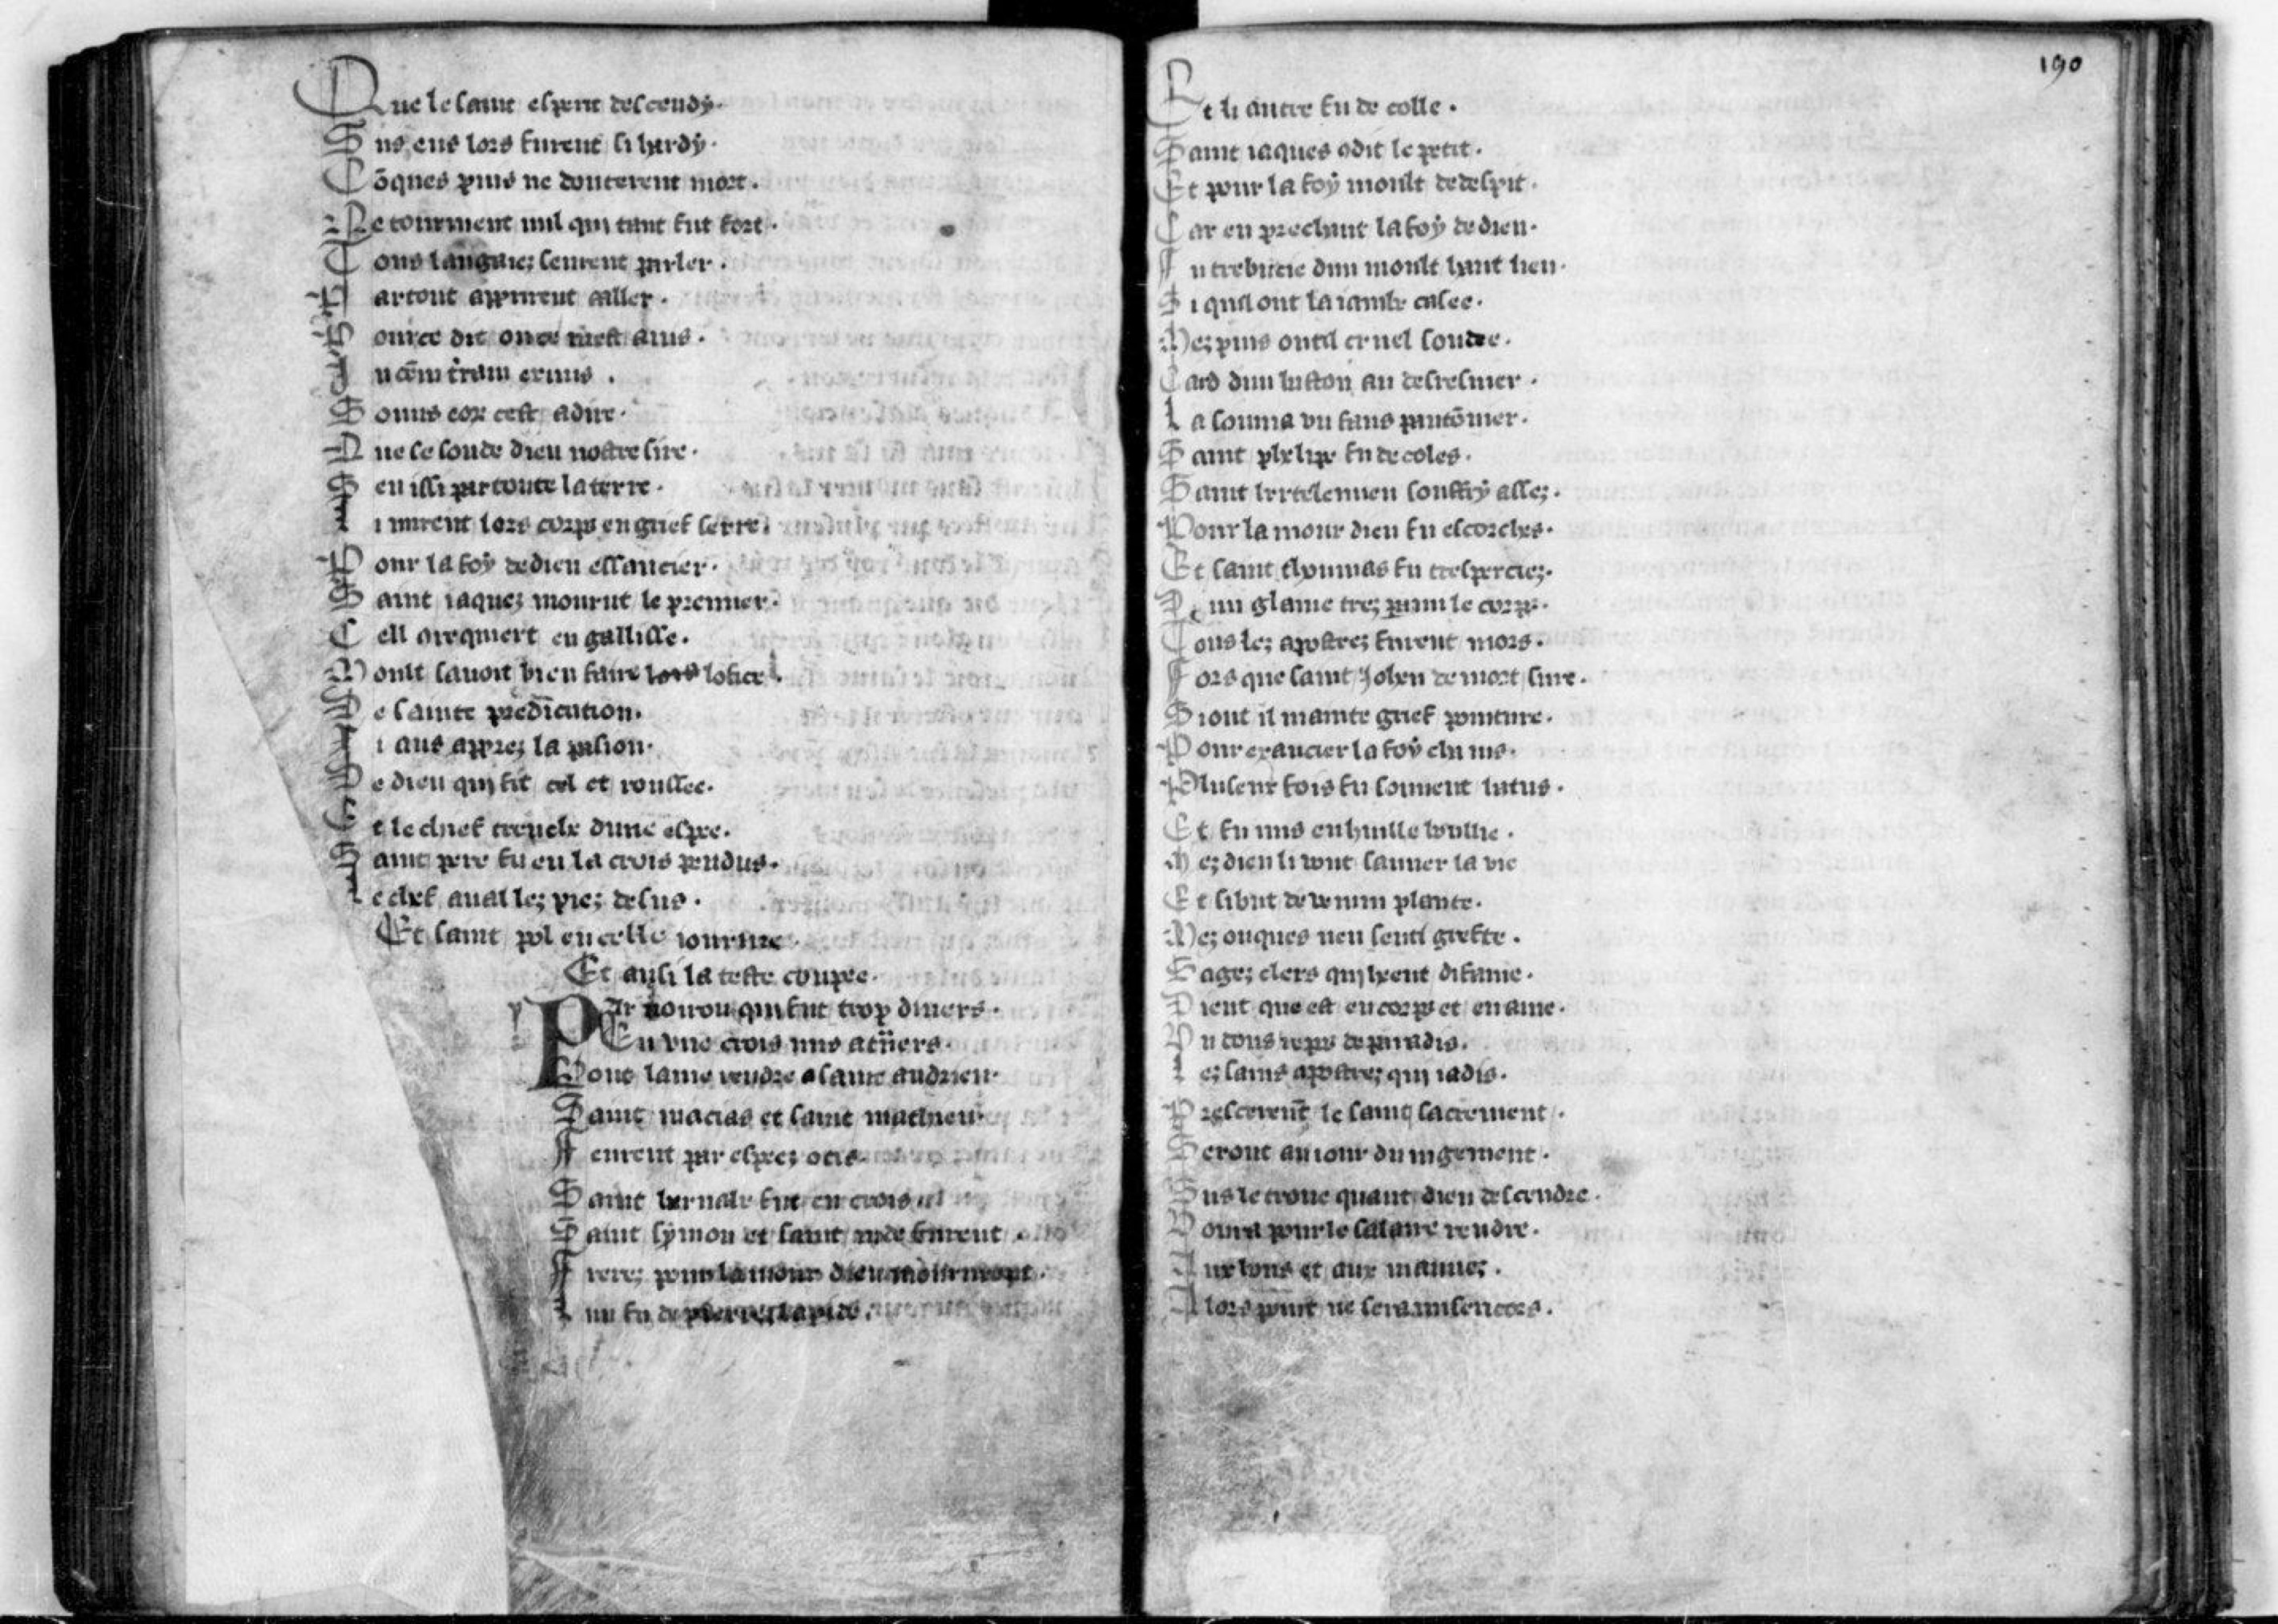 Que le saint esperit descendy.
Sus eus lors furent si hardy.
Cõques puis ne douterent mort.
Ne tourment nul qui tant fut fort.
Tous languaiez seurent parler.
Partout apprirent aller.
Souice dit on ce mest auis.
In oẽm tr̃am exiuit.
Sonus eor cest adire.
Que le sonde dieu nostre sire.
Sen issi par toute la terre.
Si mirent lors corps en grief serre.
Pour la foy de dieu essaucier.
Saint iaquez mourut le premier.
Cell quequiert en gallisse.
Moult sauoit bien faire lofice.
De sainte predicution.
Si ans apprez la pasion.
De dieu qui fit ciel et rousee.
Ot le chief trenche dune espee.
Saint pere fu en la crois pendus.
Le chef aual lez piez desus.
Et saint pol en celle iournee.
Et ausi la teste coupee.
Par noirou qui fut trop diuers.
En vne crois mis atũers.
Dont lame rendre a saint audrieu.
Saint macias et saint mathieu.
Feurent par espeez ocis.
Saint barnabe fut en crois
Saint symon et saint iude furent.
Frerez pour lamour dieu moururent.
Lun fu de pierrez lapide.
190
Et li autre fu de colle.
Saint iaques odit le petit.
Et pour la foy moult de despit.
Car en preschant la foy de dieu.
Fu trebucie dun moult haut lieu.
Si quil ont la iambe casee.
Mez puis ont il cruel soudee.
Card dun baston au desresnier.
La somma vn faus pautõnier.
Saint phelipe fu de coles.
Saint bertelemieu souffry assez.
Pour lamour dieu fu escorches.
Et saint thoumas fu tresperciez.
De un glaiue trez parmi le corps.
Tous lez apostrez furent mors.
Fors que saint Johen de mort sure.
Si ont il mainte grief pointure.
Pour exaucier la foy chi ius.
Pluseur fois fu souuent batus.
Et fu mis en huille boullie.
Mez dieu li vout sauuer la vie
Et si but de venim plante.
Mez onques neu senti griefte.
Sagez clers qui heent difame.
Dient que est en corps et en ame.
Du tous repos de paradis.
Lez sains apostrez qui iadis.
Preschereut le saint sacrement.
Seront au iour du iugement.
Sus le trone quant dieu descendre.
Voura pour le salaire rendre.
Aux bons et aux mauuez.
Alors point ne sera